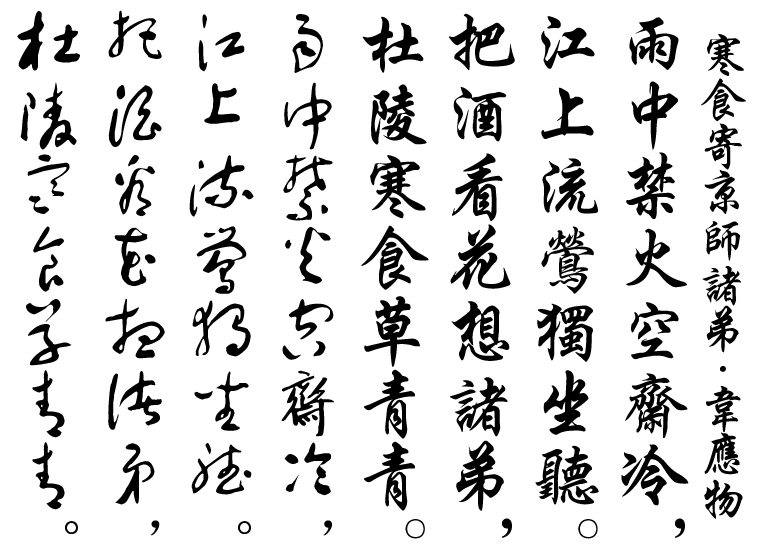 寒食寄京師諸弟·韋應物
雨中禁火空齋冷，
江上流鶯獨坐聽。
把酒看花想諸弟，
杜陵寒食草青青。
雨中禁火空齋冷，
江上流鶯獨坐聽。
把酒看花想諸弟，
杜陵寒食草青青。